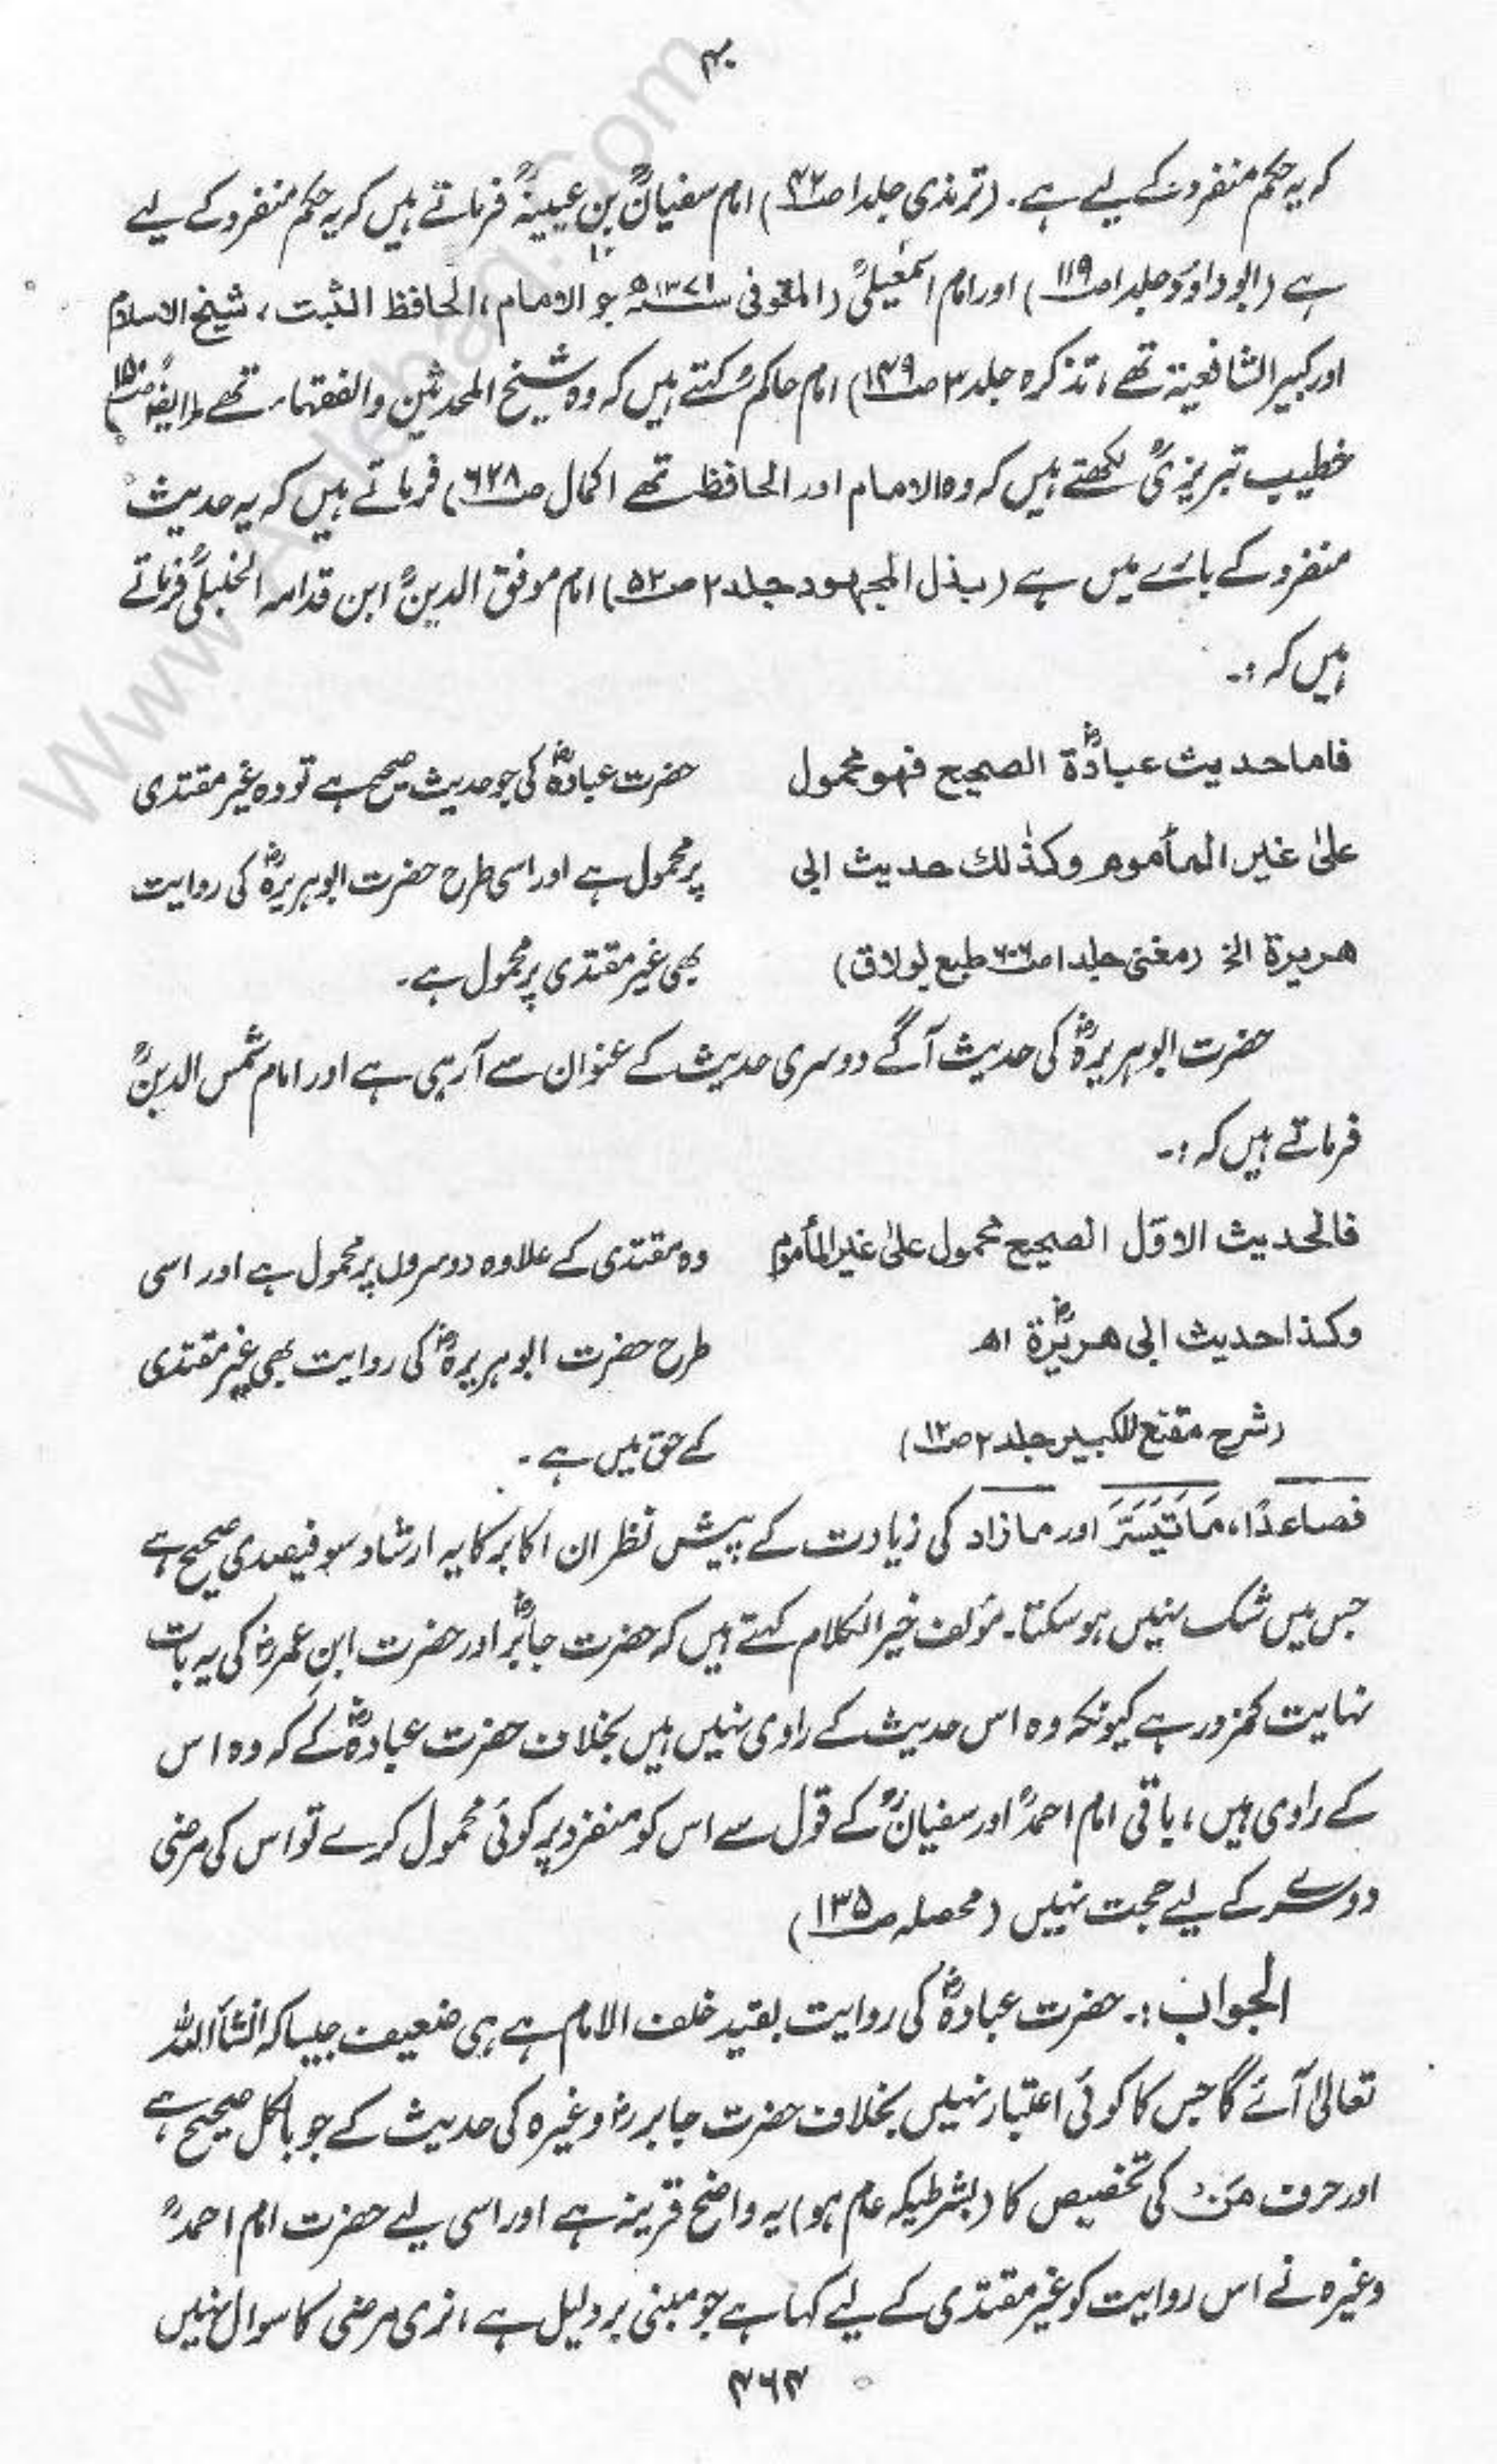 ۴۰
کہ یہ حکم منفرد کے لیے ہے۔ (ترمذی جلد ۱ ص۴۲) امام سفیانؒ بن عیینہؒ فرماتے ہیں کہ یہ حکم منفرد کے لیے
ہے (ابوداؤد جلد ۱ ص۱۱۹) اور امام اسمٰعیلیؒ (المتوفی ۳۷۱ھ جو الامام، الحافظ الثبت، شیخ الاسلام
اور کبیر الشافعیۃ تھے، تذکرہ جلد ۳ ص۱۴۹) امام حاکمؒ کہتے ہیں کہ وہ شیخ المحدثین والفقہاء تھے (ایضًا ص۱۵۰)
خطیب تبریزیؒ لکھتے ہیں کہ وہ الامام اور الحافظ تھے اکمال ص۶۲۸) فرماتے ہیں کہ یہ حدیث
منفرد کے بارے میں ہے (بذل المجہود جلد ۲ ص۵۲) امام موفق الدینؒ ابن قدامہ الحنبلیؒ فرماتے
ہیں کہ :۔
فاما حدیث عبادۃؓ الصحیح فھو محمول
علیٰ غیر المأموم وکذٰلک حدیث ابی
ھریرۃ الخ (مغنی جلد ۱ ص۶۰۶ طبع بولاق)
حضرت عبادہؓ کی جو حدیث صحیح ہے تو وہ غیر مقتدی
پر محمول ہے اور اسی طرح حضرت ابوہریرہؓ کی روایت
بھی غیر مقتدی پر محمول ہے۔
حضرت ابوہریرہؓ کی حدیث آگے دوسری حدیث کے عنوان سے آرہی ہے اور امام شمس الدینؒ
فرماتے ہیں کہ :۔
فالحدیث الاوّل الصحیح محمول علیٰ غیر المأموم
وکذا حدیث ابی ھریرۃؓ اھ
(شرح مقنع للکبیر جلد ۲ ص۱۲)
وہ مقتدی کے علاوہ دوسروں پر محمول ہے اور اسی
طرح حضرت ابوہریرہؓ کی روایت بھی غیر مقتدی
کے حق میں ہے۔
فصاعدًا، مَاتَیَسَّرَ اور مازاد کی زیادت کے پیش نظر ان اکابر کا یہ ارشاد سو فیصدی صحیح ہے
جس میں شک نہیں ہو سکتا۔ مؤلف خیر الکلام کہتے ہیں کہ حضرت جابرؓ اور حضرت ابنِ عمرؓ کی یہ بات
نہایت کمزور ہے کیونکہ وہ اس حدیث کے راوی نہیں ہیں بخلاف حضرت عبادہؓ کے کہ وہ اس
کے راوی ہیں، باقی امام احمدؒ اور سفیانؒ کے قول سے اس کو منفرد پر کوئی محمول کرے تو اس کی مرضی
دوسرے کے لیے حجت نہیں (محصلہ ص۱۳۵)
الجواب :۔ حضرت عبادہؓ کی روایت بقید خلف الامام ہے ہی ضعیف جیسا کہ انشاء اللہ
تعالیٰ آئے گا جس کا کوئی اعتبار نہیں بخلاف حضرت جابرؓ وغیرہ کی حدیث کے جو بالکل صحیح ہے
اور حرف مَنْ کی تخصیص کا (بشرطیکہ عام ہو) یہ واضح قرینہ ہے اور اسی لیے حضرت امام احمدؒ
وغیرہ نے اس روایت کو غیر مقتدی کے لیے کہا ہے جو مبنی بر دلیل ہے، نری مرضی کا سوال نہیں
۴۶۴